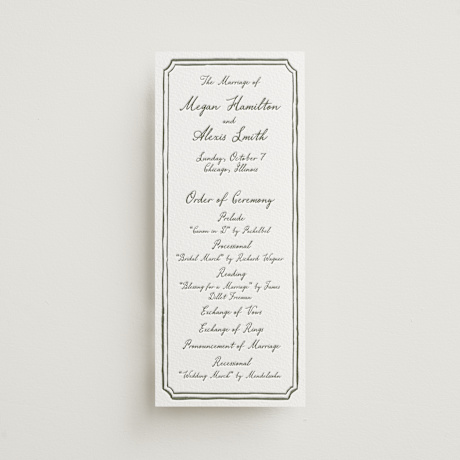 The Marriage of
Megan Hamilton
and
Alexis Smith
Sunday, October 7
Chicago, Illinois
Order of Ceremony
Prelude
"Canon in D" by Pachelbel
Processional
"Bridal March" by Richard Wagner
Reading
"Blessing for a Marriage" by James
Dillet Freeman
Exchange of Vows
Exchange of Rings
Pronouncement of Marriage
Recessional
"Wedding March" by Mendelssohn